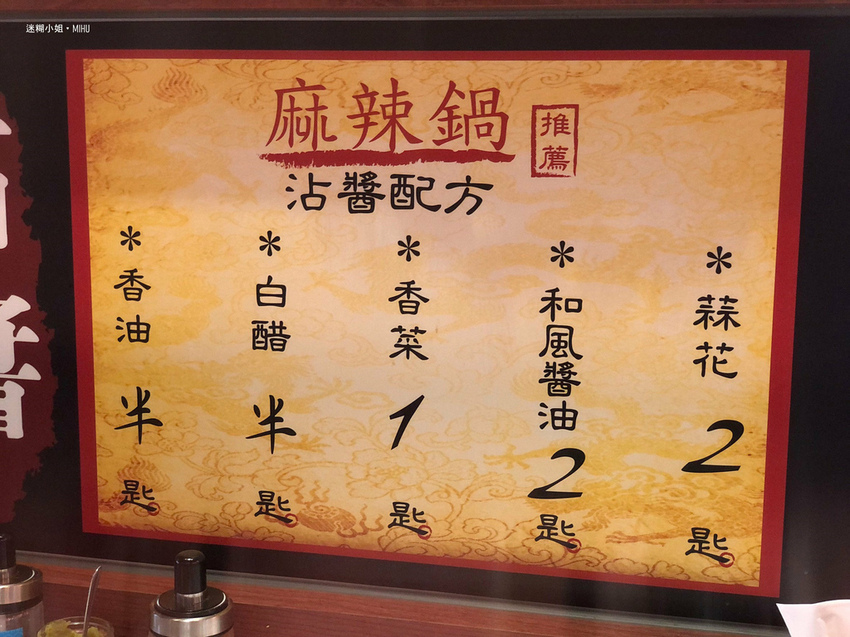 迷糊小姐·MIHU
麻辣鍋
推薦
沾醬配方
*蒜花2匙
*和風醬油2匙
*香菜1匙
*白醋半匙
*香油半匙